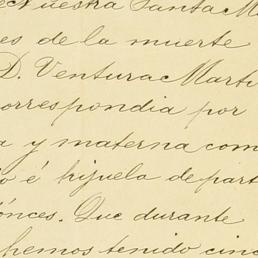 Nuestra Santa M
es de la muerte
D. Ventura Marti
correspondia por
a y materna com
o é hijuela de part
tónces. Que durante
hemos tenido cinc